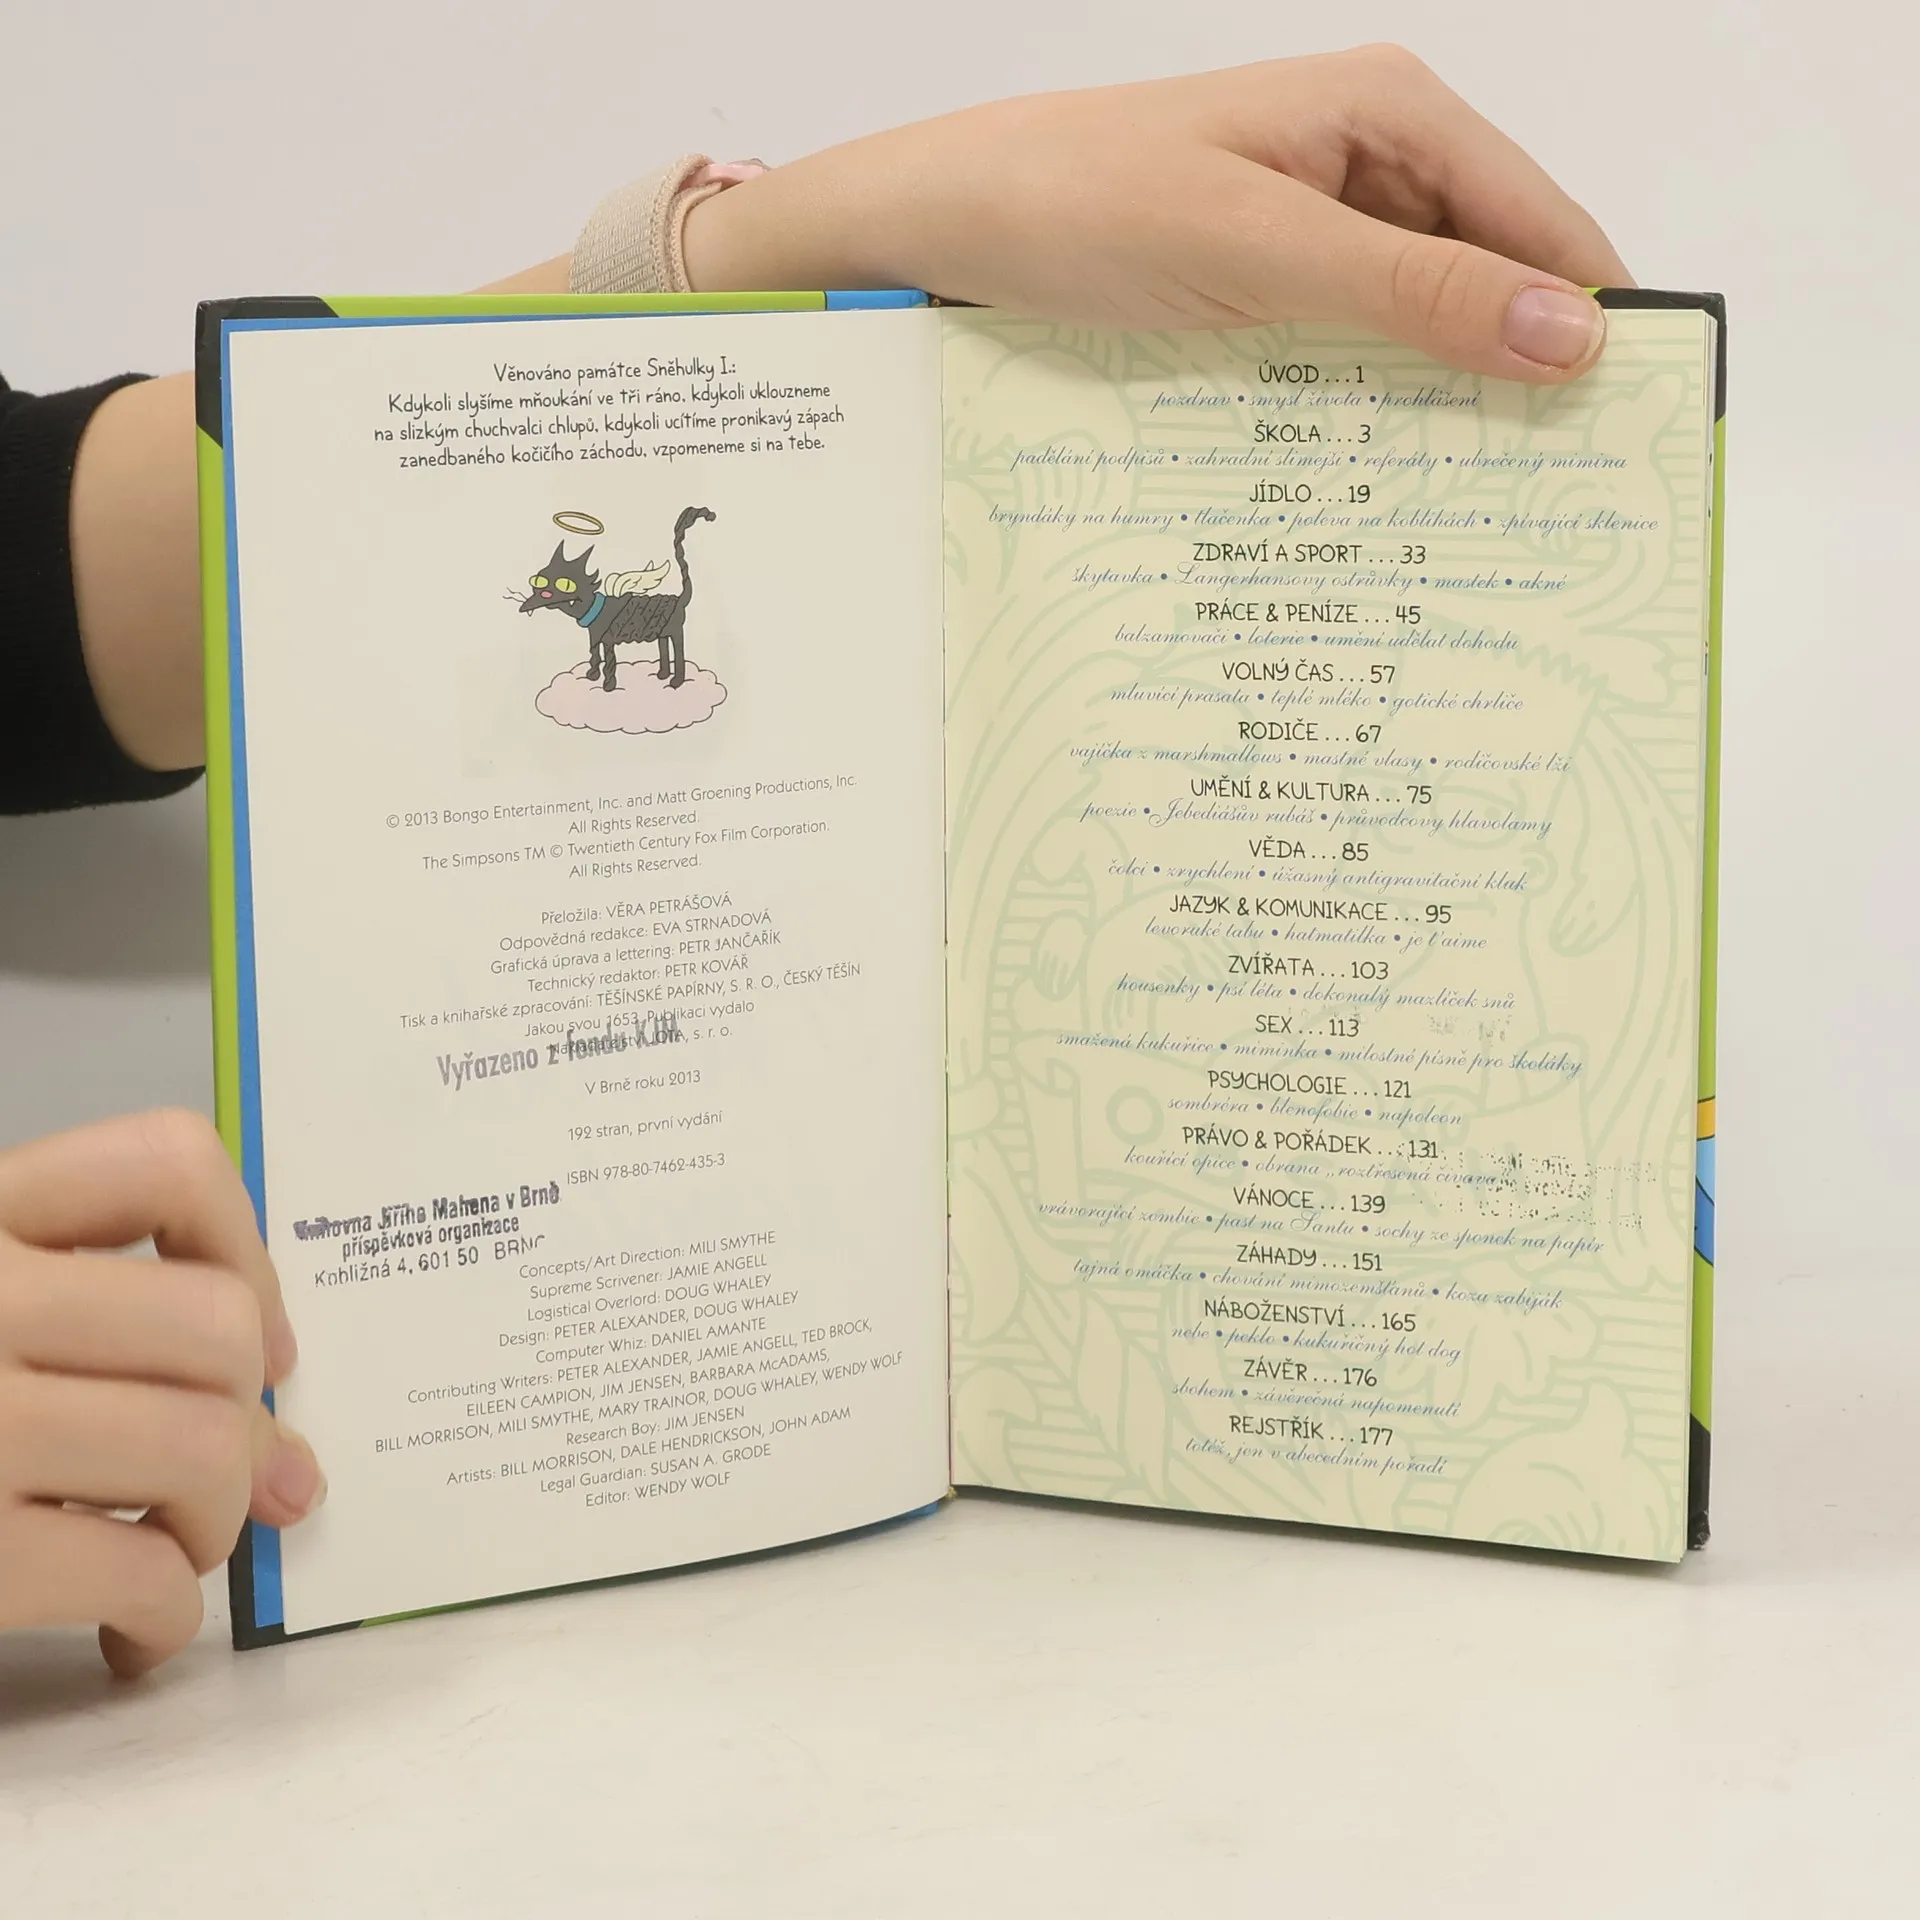 Věnováno památce Sněhulky I.:
Kdykoli slyšíme mňoukání ve tři ráno, kdykoli uklouzneme
na slizkým chuchvalci chlupů, kdykoli ucítíme pronikavý zápach
zanedbaného kočičího záchodu, vzpomeneme si na tebe.
© 2013 Bongo Entertainment, Inc. and Matt Groening Productions, Inc.
All Rights Reserved.
The Simpsons TM © Twentieth Century Fox Film Corporation.
All Rights Reserved.
Přeložila: VĚRA PETRÁŠOVÁ
Odpovědná redakce: EVA STRNADOVÁ
Grafická úprava a lettering: PETR JANČAŘÍK
Technický redaktor: PETR KOVÁŘ
Tisk a knihařské zpracování: TĚŠÍNSKÉ PAPÍRNY, S. R. O., ČESKÝ TĚŠÍN
Jakou svou 1653. Publikaci vydalo
Nakladatelství JOTA, s. r. o.
Vyřazeno z fondu KJM
V Brně roku 2013
192 stran, první vydání
ISBN 978-80-7462-435-3
Knihovna Jiřího Mahena v Brně
příspěvková organizace
Kobližná 4, 601 50 BRNO
Concepts/Art Direction: MILI SMYTHE
Supreme Scrivener: JAMIE ANGELL
Logistical Overlord: DOUG WHALEY
Design: PETER ALEXANDER, DOUG WHALEY
Computer Whiz: DANIEL AMANTE
Contributing Writers: PETER ALEXANDER, JAMIE ANGELL, TED BROCK,
EILEEN CAMPION, JIM JENSEN, BARBARA McADAMS,
BILL MORRISON, MILI SMYTHE, MARY TRAINOR, DOUG WHALEY, WENDY WOLF
Research Boy: JIM JENSEN
Artists: BILL MORRISON, DALE HENDRICKSON, JOHN ADAM
Legal Guardian: SUSAN A. GRODE
Editor: WENDY WOLF
ÚVOD...1
pozdrav • smysl života • prohlášení
ŠKOLA...3
padělání podpisů • zahradní slimejši • referáty • ubrečený mimina
JÍDLO...19
bryndáky na humry • tlačenka • poleva na koblihách • zpívající sklenice
ZDRAVÍ A SPORT...33
škytavka • Langerhansovy ostrůvky • mastek • akné
PRÁCE & PENÍZE...45
balzamovači • loterie • umění udělat dohodu
VOLNÝ ČAS...57
mluvící prasata • teplé mléko • gotické chrliče
RODIČE...67
vajíčka z marshmallows • mastné vlasy • rodičovské lži
UMĚNÍ & KULTURA...75
poezie • Jebediášův rubáš • průvodcovy hlavolamy
VĚDA...85
čolci • zrychlení • úžasný antigravitační kluk
JAZYK & KOMUNIKACE...95
levoruké tabu • hatmatilka • je t'aime
ZVÍŘATA...103
housenky • psí léta • dokonalý mazlíček snů
SEX...113
smažená kukuřice • miminka • milostné písně pro školáky
PSYCHOLOGIE...121
sombréra • blenofobie • napoleon
PRÁVO & POŘÁDEK...131
kouřící opice • obrana „roztřesená čivava“
VÁNOCE...139
vrávorající zombie • past na Santu • sochy ze sponek na papír
ZÁHADY...151
tajná omáčka • chování mimozemšťanů • koza zabiják
NÁBOŽENSTVÍ...165
nebe • peklo • kukuřičný hot dog
ZÁVĚR...176
sbohem • závěrečná napomenutí
REJSTŘÍK...177
totéž, jen v abecedním pořadí